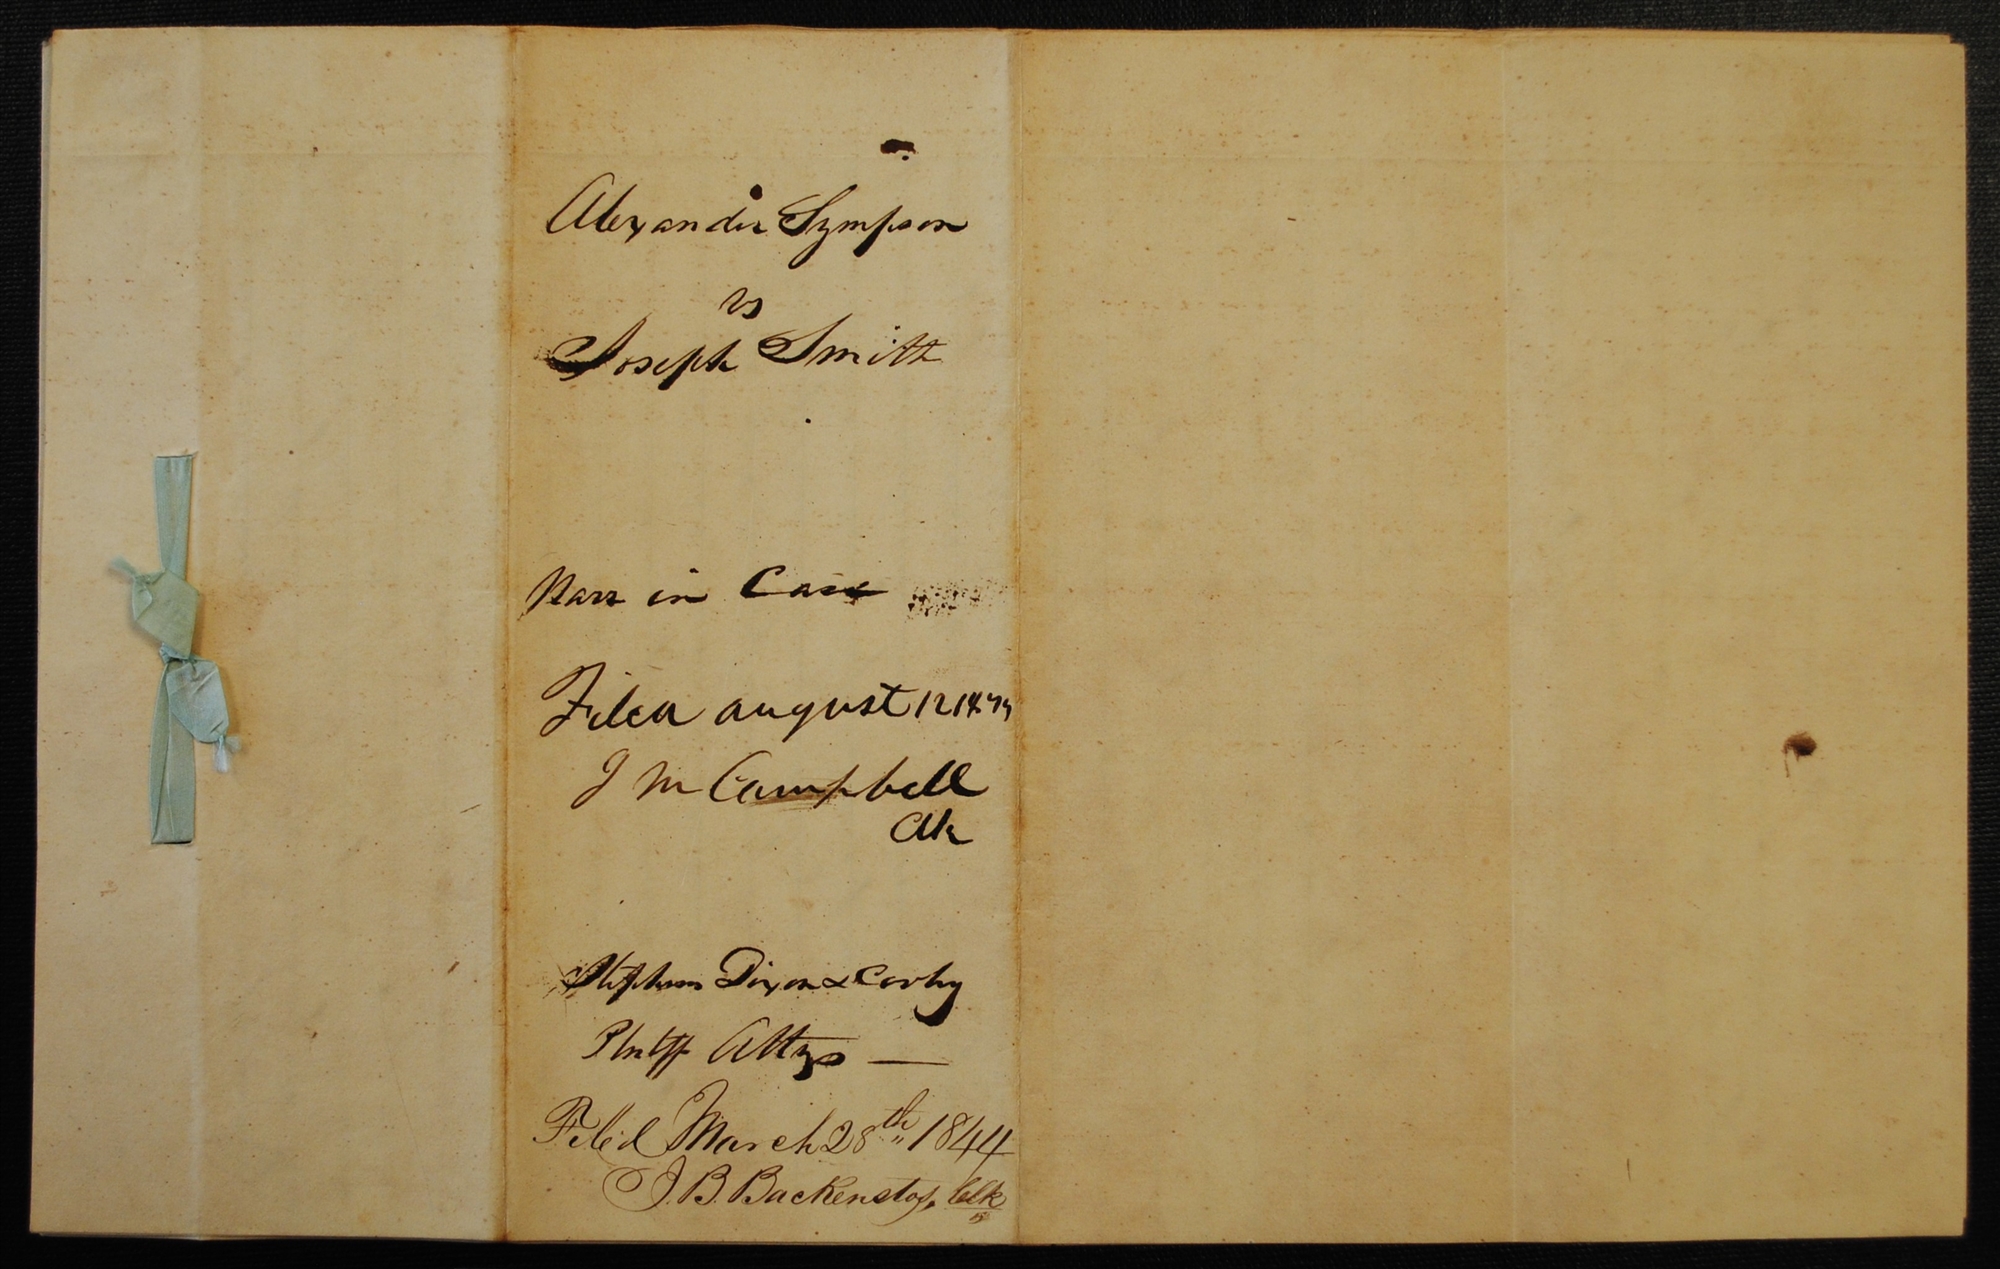 Alexander Sympson
vs
Joseph Smith
Narr in Case
Filed august 12
J M Campbell
Clk
Stephens Dixon &
Pltff Attys —
Filed March 28th 1844
J. B. Backenstos, Clk